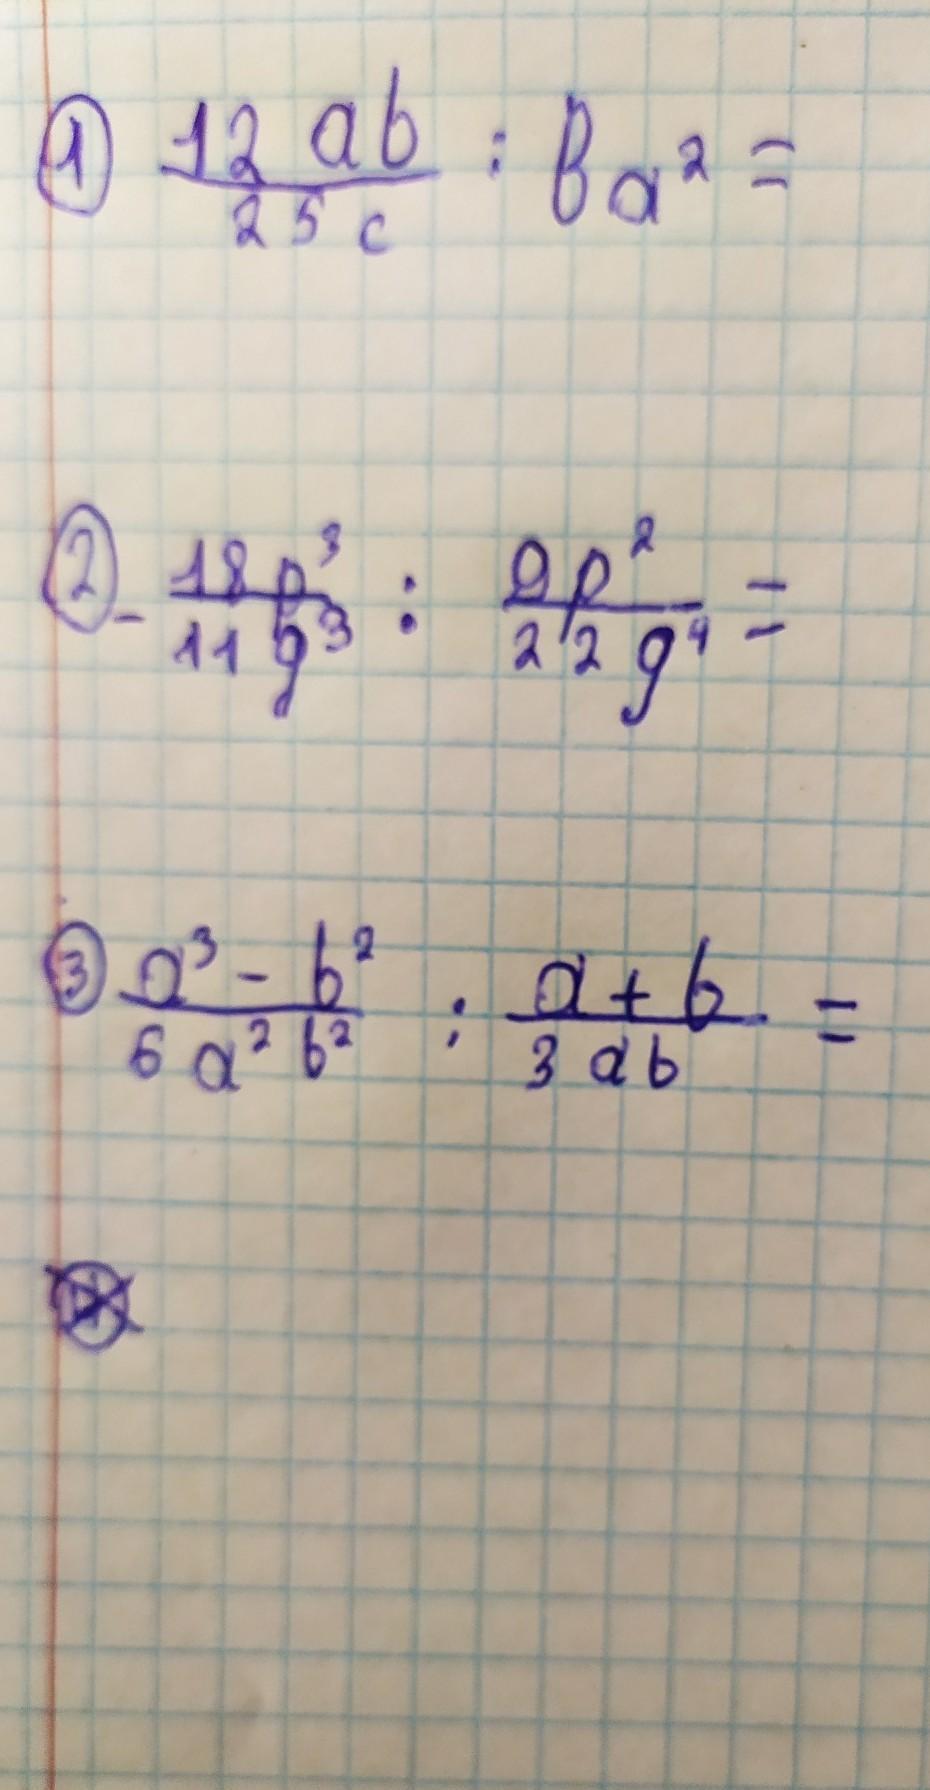 ① 12 ab / 25 c : 8a² =
② - 18p³ / 11 g³ : 9p² / 22 g⁴ =
③ a³ - b² / 6 a² b² : a + b / 3 ab =